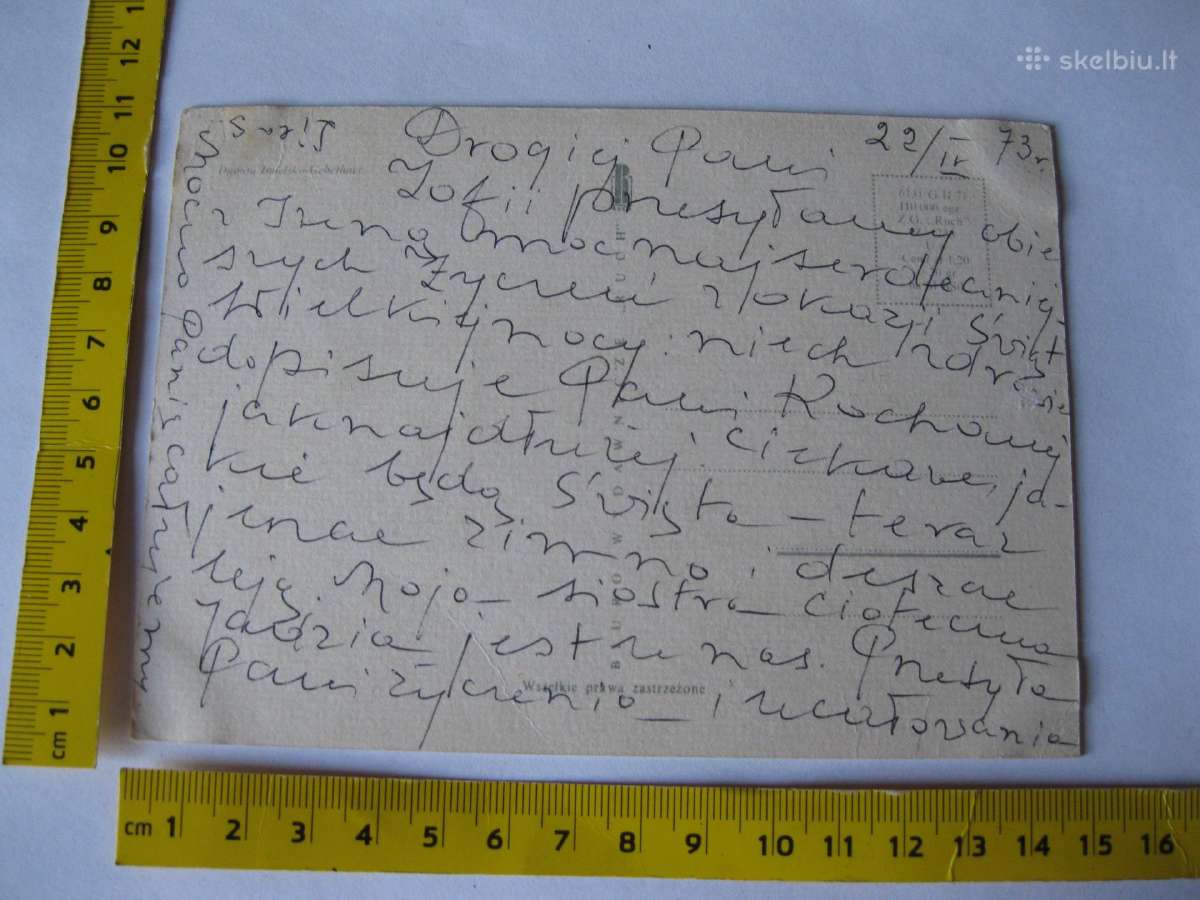 skelbiu.lt
22/IV 73 r.
Drogiej Pani
Zofii przesyłamy obie
z Ireną moc najserdeczniej-
szych życzeń z okazji Świąt
Wielkiejnocy. niech zdrowie
dopisuje Pani Kochanej
jaknajdłużej. Ciekawe, ja-
kie będą Święta – teraz
jeszcze zimno i deszcze
leją. Moja siostra cioteczna
Jadzia jest u nas. Przesyła
Pani życzenia i ucałowania
Mocno Panią całujemy
i Irena S.
Wszelkie prawa zastrzeżone
BIURO WYDAWNICZE „RUCH”
Z.G. „Ruch”
cm 1 2 3 4 5 6 7 8 9 10 11 12 1
cm 1 2 3 4 5 6 7 8 9 10 11 12 13 14 15 16